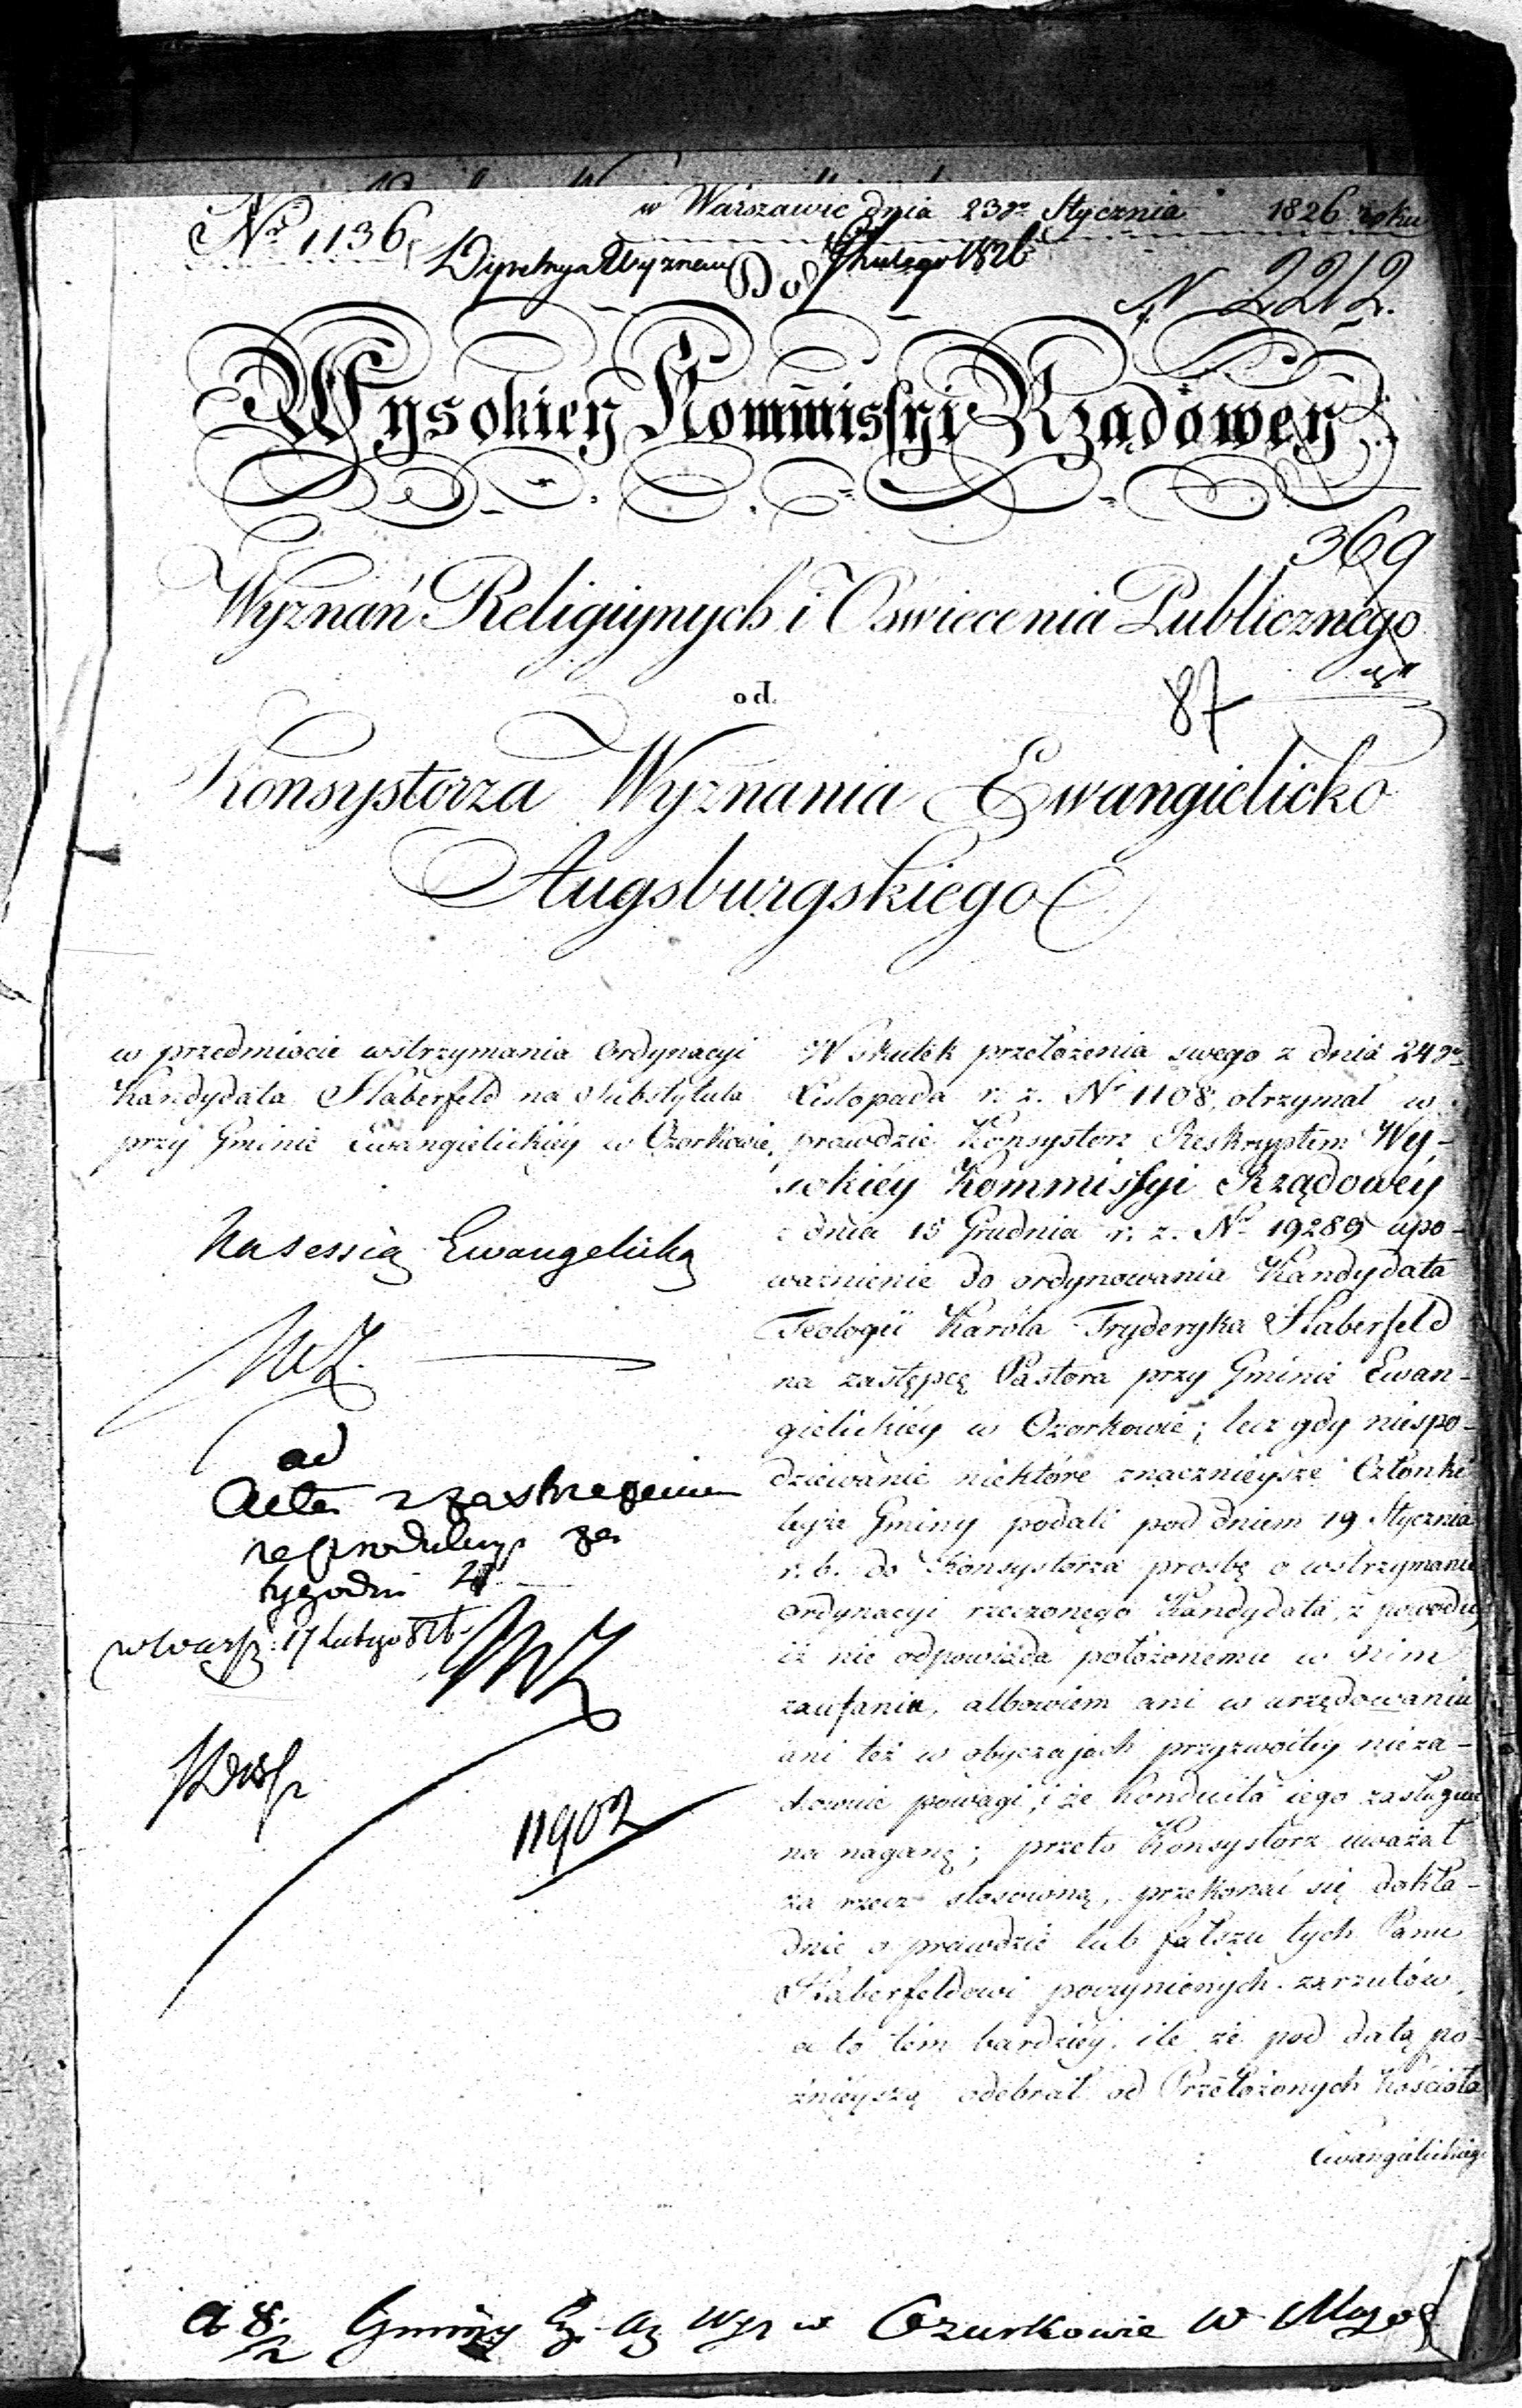 w Warszawie dnia 23go Stycznia 1826 roku
No 1136
Do
Lutego 1826
N 2212.
Wysokiey Kommissyi Rządowey
369
Wyznań Religiynych i Oswiecenia Publicznego
od
87
Konsystorza Wyznania Ewangielicko
Augsburgskiego
w przedmiocie wstrzymania Ordynacyi
Kandydata Haberfeld na Substytuta
przy Gminie Ewangielickiéy w Ozorkowie,
Na sessią Ewangelicką
ad
Acta z zastrzeżeniem
za
tygodni
w Warsz: 17 Lutego 826
11902
W skutek przełożenia swego z dnia 24go
Listopada r. z. No 1108, otrzymał w
prawdzie Konsystorz Reskryptem Wy-
sokiéy Kommissyi Rządowéy
z dnia 15 Grudnia r. z. No 19289 upo-
ważnienie do ordynowania Kandydata
Teologii Karóla Fryderyka Haberfeld
na zastępcę Pastora przy Gminie Ewan-
gielickiéy w Ozorkowie; lecz gdy niespo-
dziewanie niektóre znacznieysze Członki
teyże Gminy podali pod dniem 19 Stycznia
r. b. do Konsystorza prosbę o wstrzymanie
ordynacyi rzeczonego Kandydata, z powodu,
iż nie odpowiada położonemu w nim
zaufaniu, albowiem ani w urzędowaniu
ani też w obyczajach przyzwoitéy nieza-
chowuie powagi, i że konduita iego zasługuie
na naganę; przeto Konsystorz uważał
za rzecz stosowną, przekonać się dokła-
dnie o prawdzie lub fałszu tych Panu
Haberfeldowi poczynionych zarzutów,
a to tém bardziéy, ile że pod datą pó-
źnieyszą odebrał od Przełożonych Kościoła
Ewangielickiego
Gminy Ew Aug Wyz w Ozurkowie w Mazow